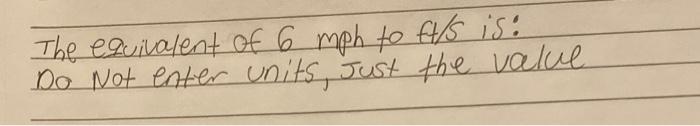 The equivalent of 6 mph to ft/s is:
Do Not enter units, Just the value